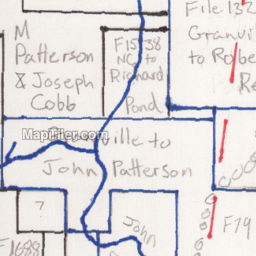 M
Patterson
& Joseph
Cobb
F1538
NC to
Richard
Pond
File 132
Granvi
to Robe
Re
MapItHer.com
ville to
John Patterson
?
John
F79